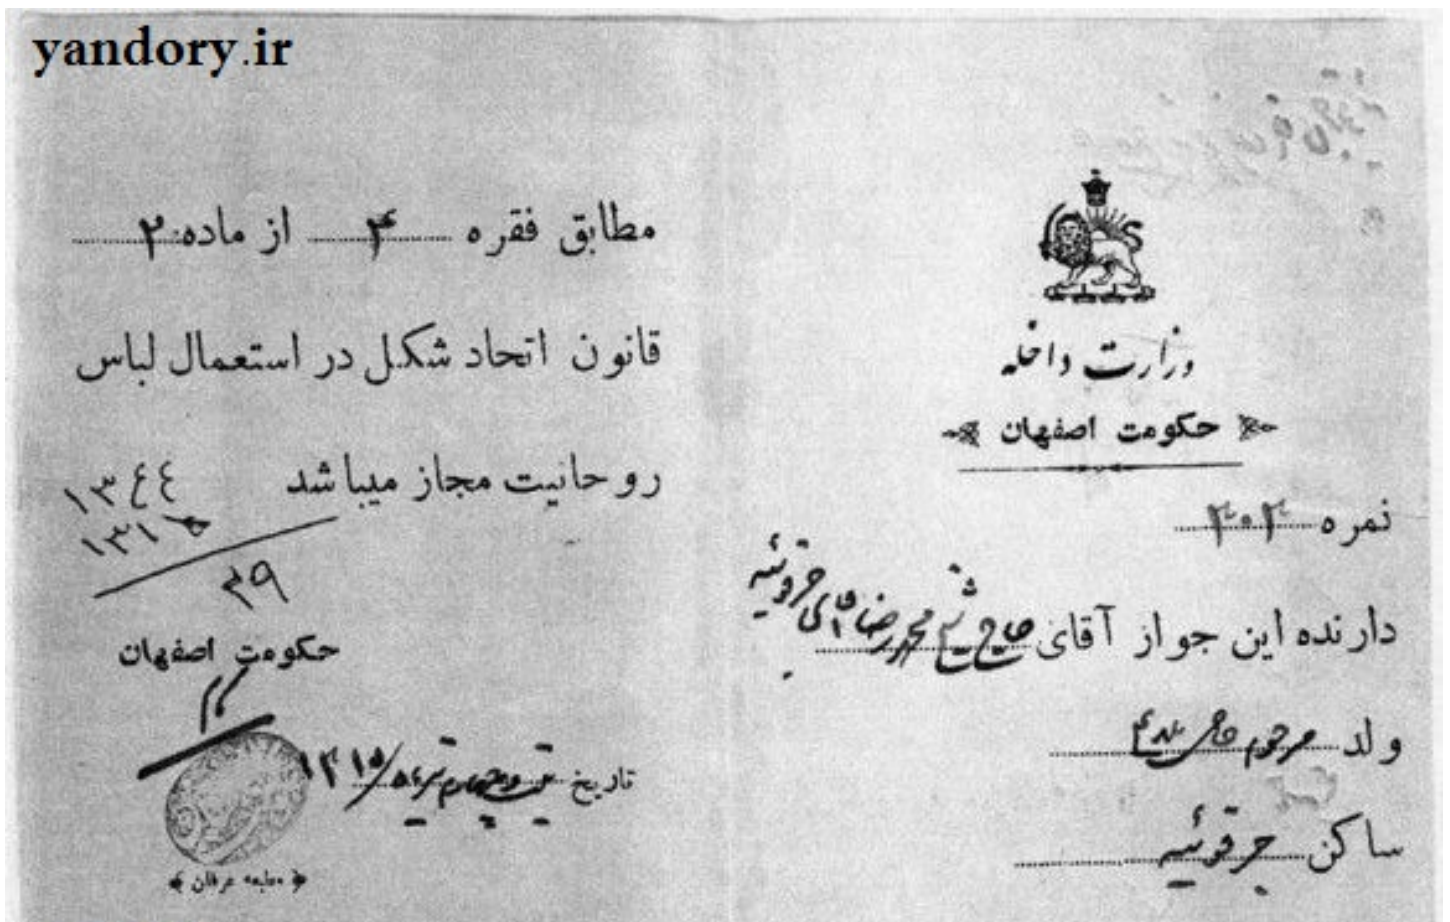 yandory.ir
وزارت داخله
حکومت اصفهان
نمره ۴۰۲
دارنده این جواز آقای حاج شیخ محمد رضا آقای جرقوئیه
ولد مرحوم حاجی
ساکن جرقوئیه
مطابق فقره ۴ از ماده ۲
قانون اتحاد شکل در استعمال لباس
روحانیت مجاز میباشد
۱۳۴۴
۱۳۱۵
۲۹
حکومت اصفهان
تاریخ ۱۳۱۵
مطبعه عرفان